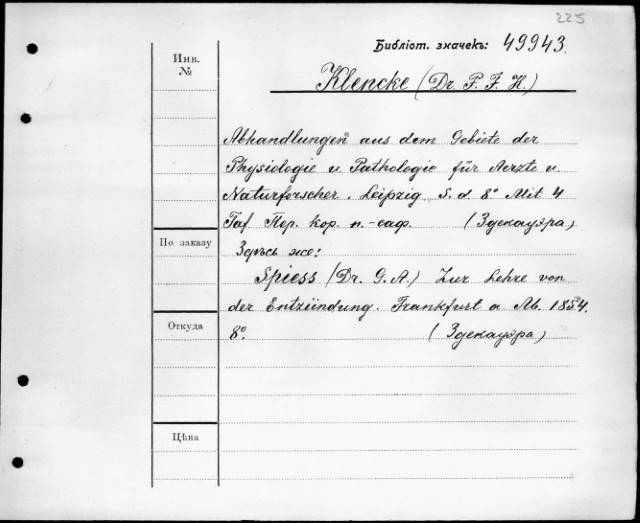 225
Библіот. значекъ: 49943.
Инв.
№
Klencke (Dr. P. F. H.)
Abhandlungen aus dem Gebiete der
Physiologie u. Pathologie für Aerzte u
Naturforscher. Leipzig. S. d. 8° Mit 4
Taf Пер. кор. п.-саф. (Здекауэра)
По заказу
Здѣсь же:
Spiess (Dr. G. A.) Zur Lehre von
der Entzündung. Frankfurt a M. 1854.
Откуда
8° (Здекауэра)
Цѣна